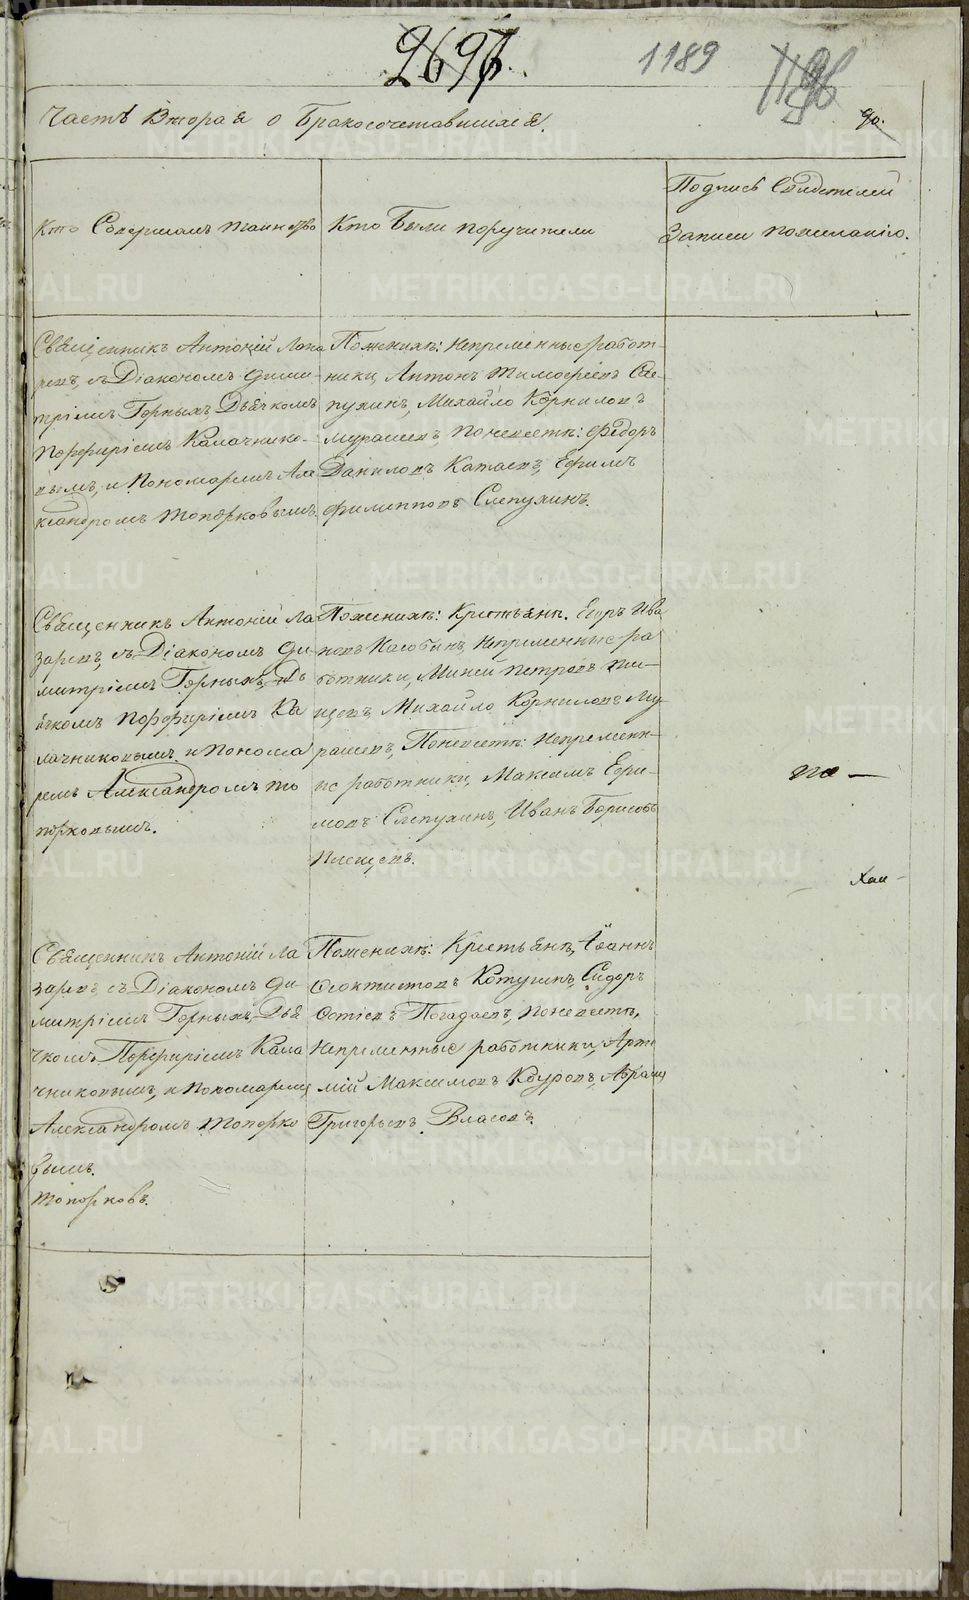 2697.
1189
90.
Часть Вторая о Бракосочетавшихся.
Кто Совершалъ таинство
Кто Были поручители
Подпись Свидетелей
Записи по желанію.
Священникъ Антоній Лаза
ревъ, съ Діакономъ Дими
тріемъ Горныхъ Дьячкомъ
Порфиріемъ Калачнико-
вымъ, и Пономаремъ Але
ксандромъ Топорковымъ.
По женихѣ: Непременные работ-
ники, Антонъ Тимофеевъ Сле-
пухинъ, Михайло Корниловъ
Мурашевъ, По невестѣ: Федоръ
Даниловъ Катаевъ, Ефимъ
Филипповъ Слепухинъ.
Священникъ Антоній Ла
заревъ, съ Діакономъ Ди
митріемъ Горныхъ, Дь
ячкомъ Порфиріемъ Ка
лачниковымъ и Понома
ремъ Александромъ То
порковымъ.
По женихѣ: Крестьянъ. Егоръ Ива
новъ Непременные ра
ботники, Миней Петровъ Пле-
щевъ, Михайло Корниловъ Му
рашевъ, По невестѣ: Непременн-
ые работники, Максимъ Ефи-
мовъ Слепухинъ, Иванъ Борисовъ
Плещевъ.
Священникъ Антоній Ла
заревъ съ Діакономъ Ди
митріемъ Горныхъ, Дья
чкомъ Порфиріемъ Кала
чниковымъ, и Пономаремъ
Александромъ Топорко
вымъ.
Топорковъ.
По женихѣ: Крестьянъ, Іоаннъ
Феоктистовъ Котугинъ, Сидоръ
Фотіевъ Погадаевъ, По невестѣ,
Непременные работники, Арте
мій Максимовъ Абрамъ
Григорьевъ Власовъ.
METRIKI.GASO-URAL.RU